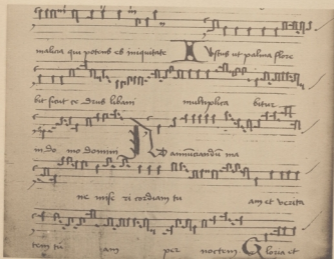 malicia qui potens es iniquitate Iustus ut palma flore
bit sicut ce drus libani multiplica bitur
in do mo domini Ad annunciandum ma
ne mise ri cordiam tu am et verita
tem tu am per noctem Gloria et